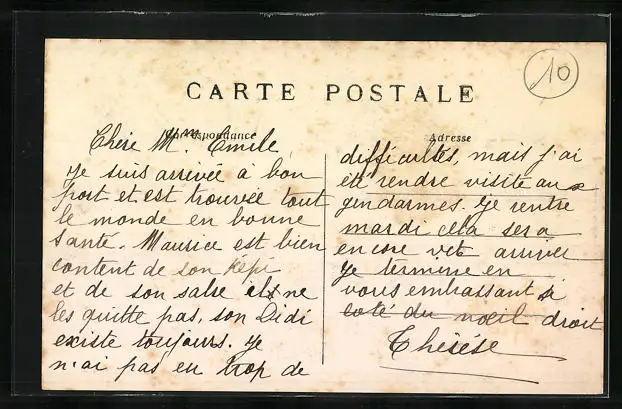 10
CARTE POSTALE
Correspondance
Adresse
Chère Mme. Emile,
Je suis arrivée à bon
port et est trouvée tout
le monde en bonne
santé. Maurice est bien
content de son képi
et de son sabre il ne
les quitte pas, son Didi
existe toujours. Je
n'ai pas eu trop de
difficultés, mais j'ai
été rendre visite aux
gendarmes. Je rentre
mardi cela sera
encore vite arriver
Je termine en
vous embrassant
coté du noeil droit
Thérèse